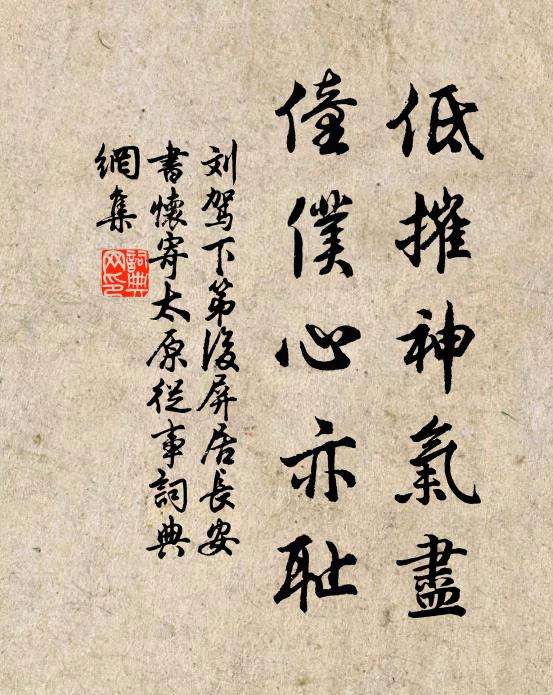 低摧神氣盡
僮僕心亦耻
刘駕下第後屏居長安
書懷寄太原從事詞典
網集
詞典
网印